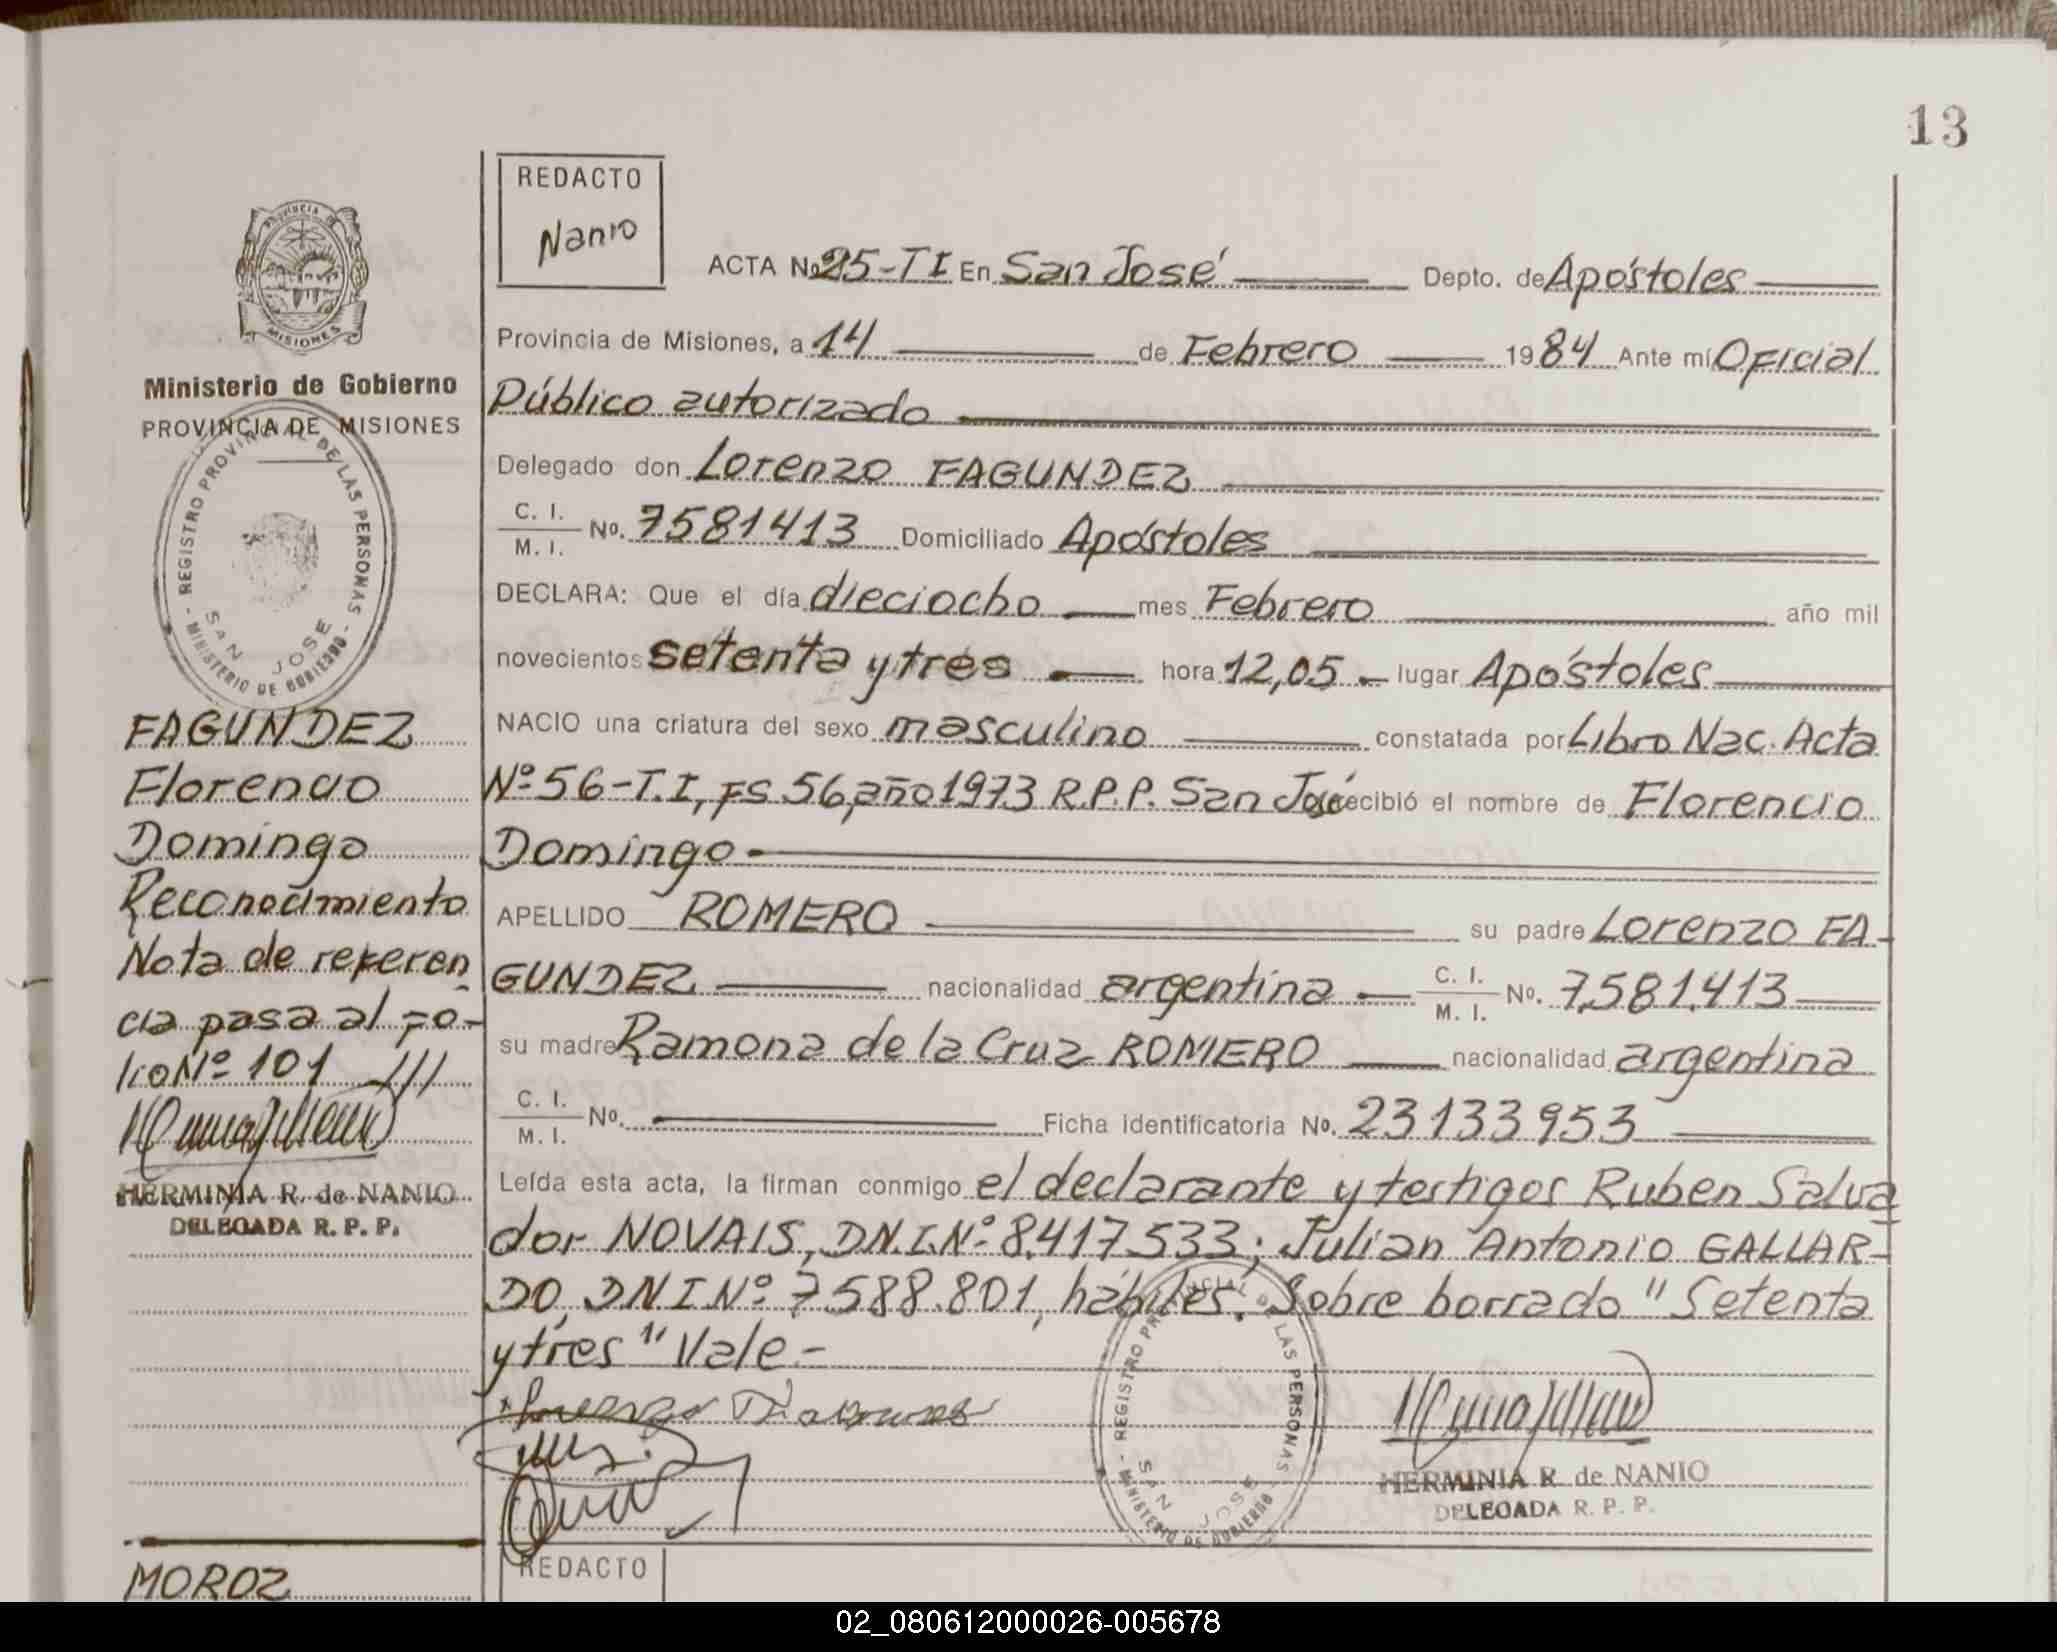 13
REDACTO
Nanio
ACTA No 25-T I En San José Depto. de Apóstoles
Provincia de Misiones, a 14 de Febrero 1984 Ante mí Oficial
Público autorizado
Delegado don Lorenzo FAGUNDEZ
C. I.
M. I.
No. 7581413 Domiciliado Apóstoles
DECLARA: Que el día dieciocho mes Febrero año mil
novecientos setenta y tres hora 12,05 lugar Apóstoles
NACIO una criatura del sexo masculino constatada por Libro Nac. Acta
Nº 56-T.I, FS 56, año 1973 R.P.P. San José recibió el nombre de Florencio
Domingo
APELLIDO ROMERO su padre Lorenzo FA-
GUNDEZ nacionalidad argentina C. I.
M. I. No. 7.581.413
su madre Ramona de la Cruz ROMERO nacionalidad argentina
C. I.
M. I. No. Ficha identificatoria No. 23133953
Leída esta acta, la firman conmigo el declarante y testigos Ruben Salva
dor NOVAIS, D.N.I.Nº 8.417.533; Julian Antonio GALLAR-
DO, DNI Nº 7.588.801, hábiles. Sobre borrado "Setenta
y tres" Vale.-
HERMINIA R. de NANIO
DELEGADA R. P. P.
REGISTRO PROVINCIAL DE LAS PERSONAS
MINISTERIO DE GOBIERNO
SAN JOSE
PROVINCIA DE
MISIONES
Ministerio de Gobierno
PROVINCIA DE MISIONES
REGISTRO PROVINCIAL DE LAS PERSONAS
MINISTERIO DE GOBIERNO
SAN JOSE
FAGUNDEZ
Florencio
Domingo
Reconocimiento
Nota de referen
cia pasa al fo-
lio Nº 101 ///
HERMINIA R. de NANIO
DELEGADA R. P. P.
MOROZ
REDACTO
02_080612000026-005678